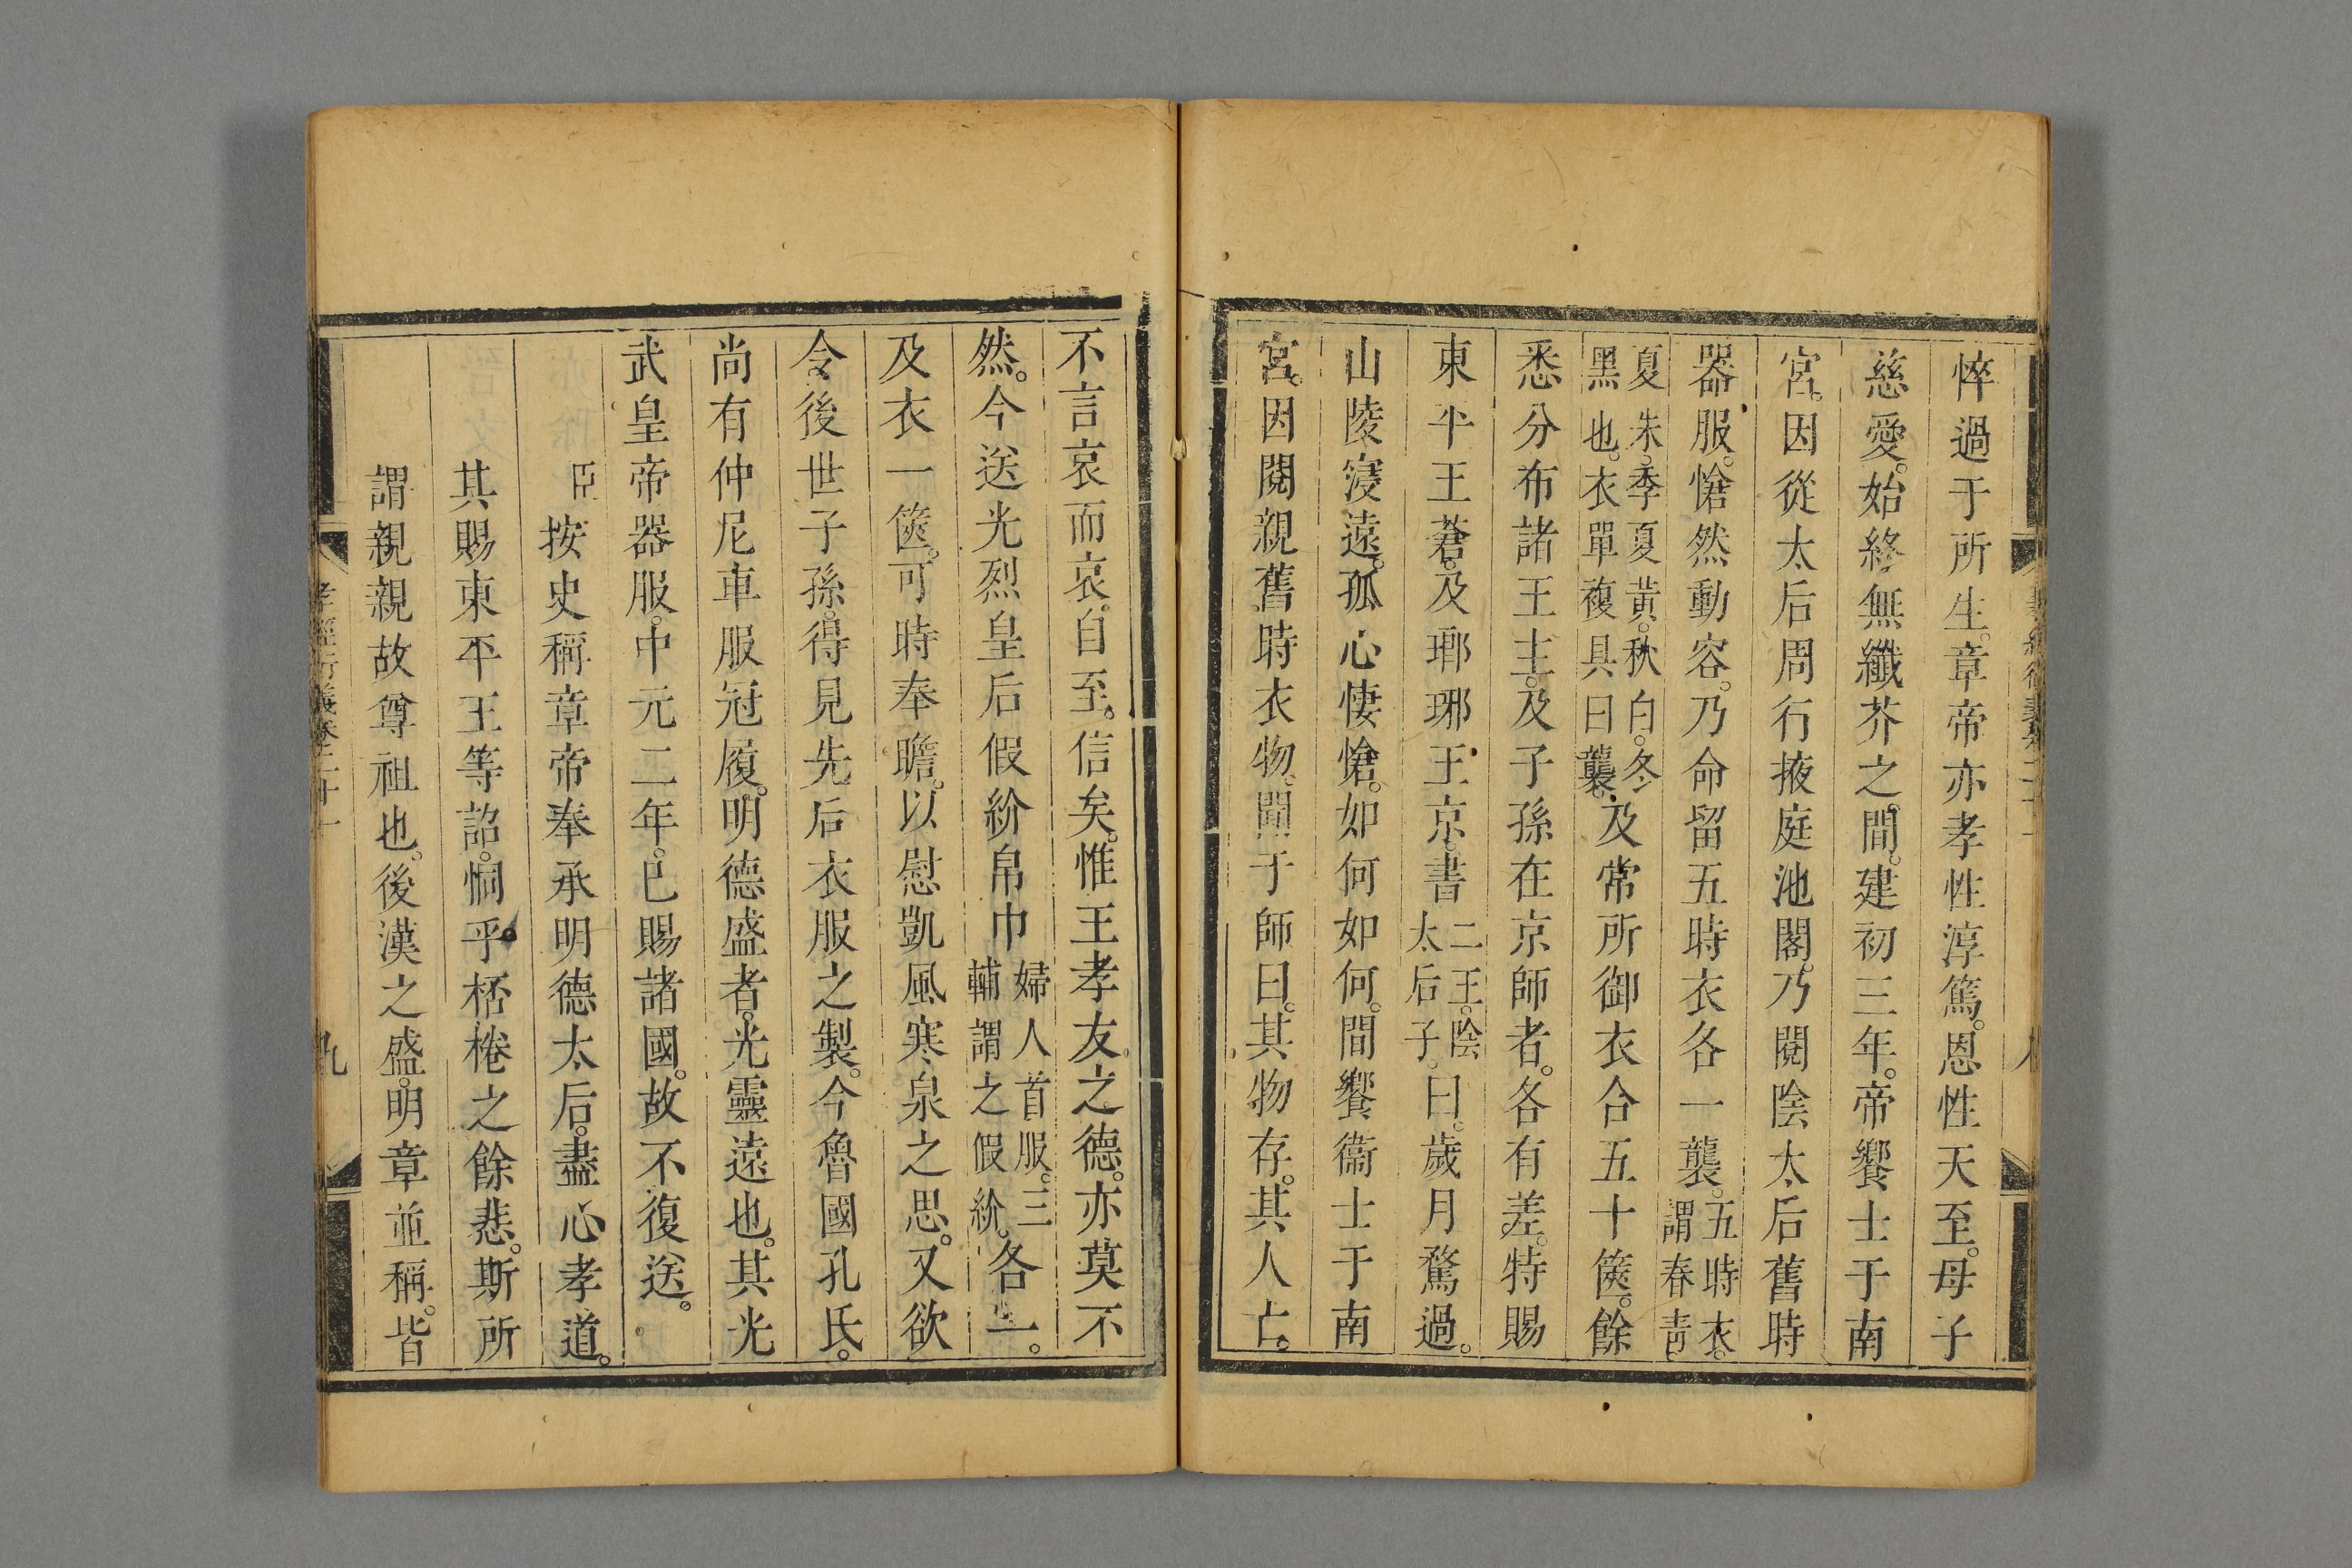 悴過于所生。章帝亦孝性淳篤。恩性天至。母子
慈愛。始終無纖芥之間。建初三年。帝饗士于南
宮。因從太后周行掖庭池閣。乃閱陰太后舊時
器服。愴然動容。乃命留五時衣各一襲。五時衣。謂春青。
夏朱。季夏黃。秋白。冬黑也。衣單複具曰襲。及常所御衣合五十篋。餘
悉分布諸王主。及子孫在京師者。各有差。特賜
東平王蒼。及琅琊王京。書二王。陰太后子。曰。歲月騖過。
山陵寖遠。孤心悽愴。如何如何。間饗衞士于南
宮。因閱親舊時衣物。聞于師曰。其物存。其人亡。
不言哀而哀。自至。信矣。惟王孝友之德。亦莫不
然。今送光烈皇后假紒帛巾婦人首服。三輔謂之假紒。各一。
及衣一篋。可時奉瞻。以慰凱風寒泉之思。又欲
令後世子孫。得見先后衣服之製。今魯國孔氏。
尚有仲尼車服冠履。明德盛者。光靈遠也。其光
武皇帝器服。中元二年。已賜諸國。故不復送。
臣按史稱章帝奉承明德太后。盡心孝道。
其賜東平王等詔。恫乎桮棬之餘悲。斯所
謂親親故尊祖也。後漢之盛。明章並稱。皆
孝經衍義卷二十一
九